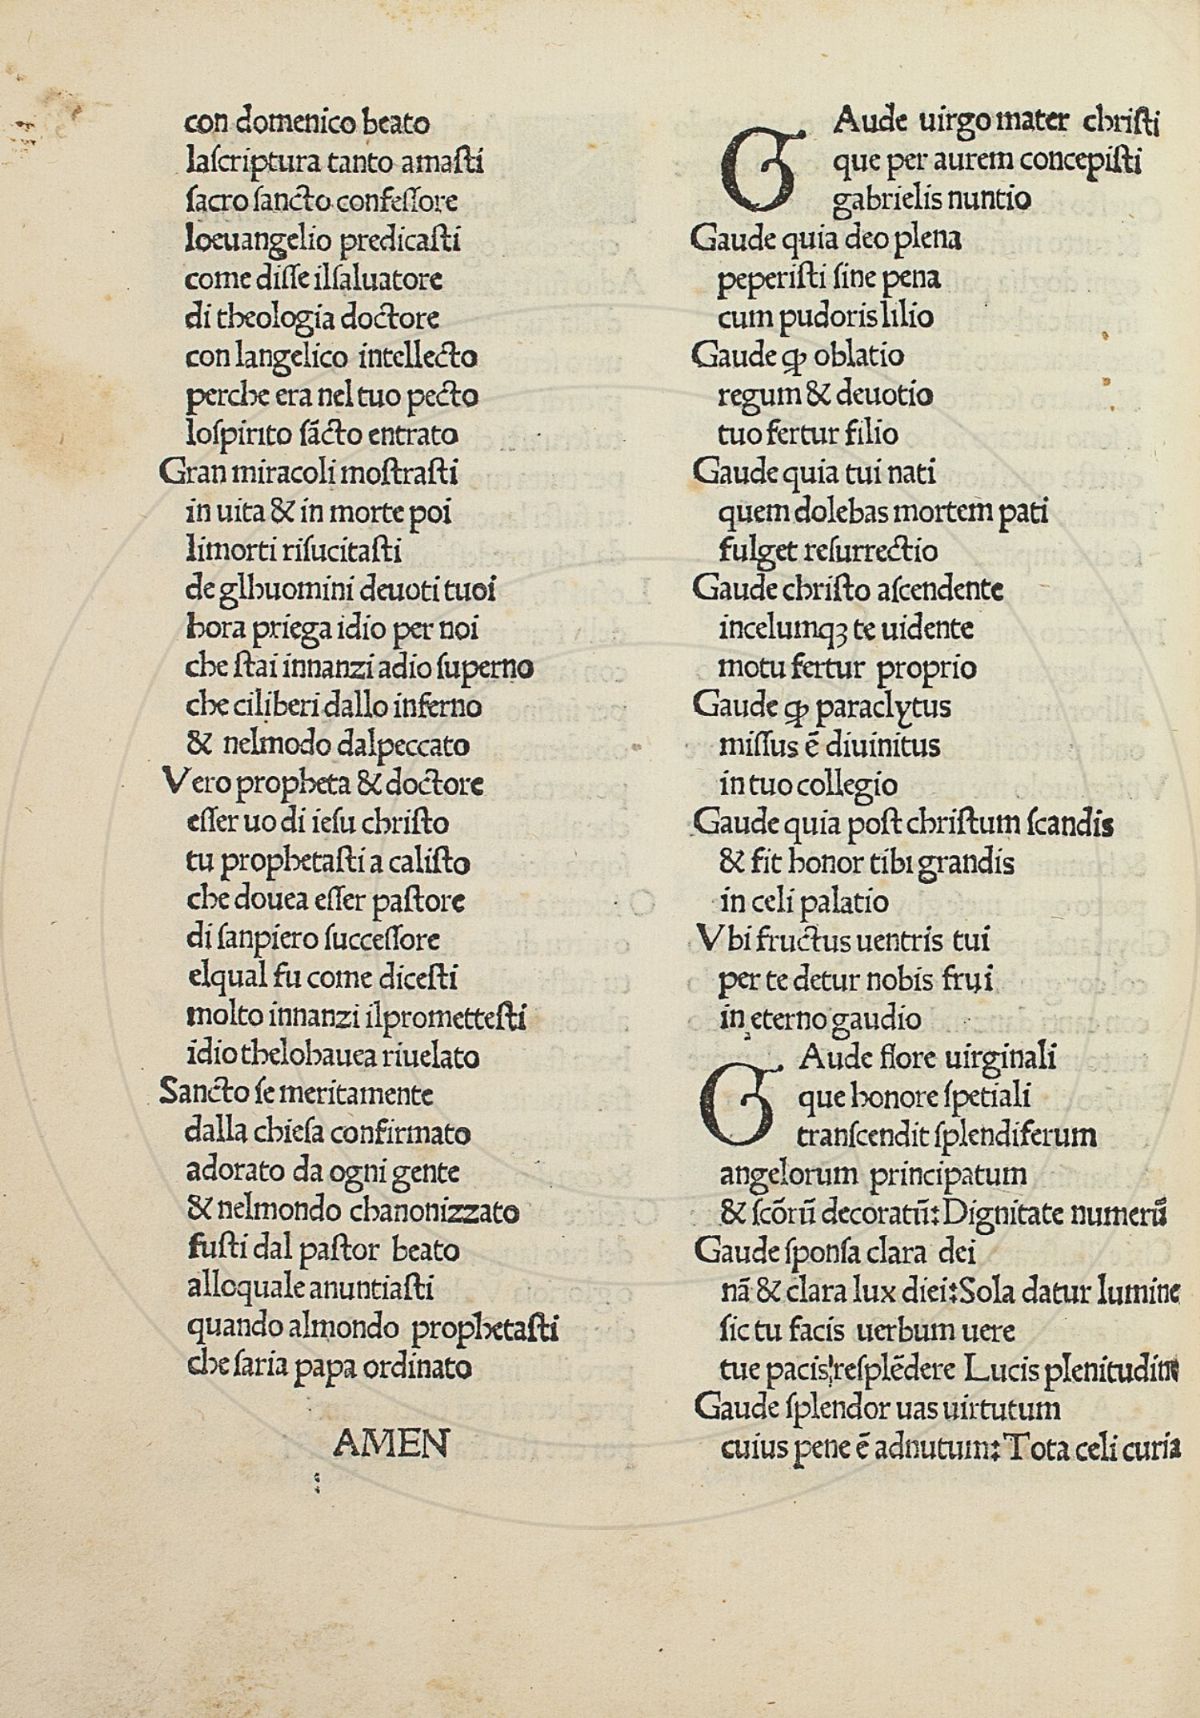 con domenico beato
laſcriptura tanto amaſti
ſacro ſancto confeſſore
loeuangelio predicaſti
come diſſe ilſaluatore
di theologia doctore
con langelico intellecto
perche era nel tuo pecto
loſpirito ſãcto entrato
Gran miracoli moſtraſti
in uita & in morte poi
limorti riſucitaſti
de glhuomini deuoti tuoi
hora priega idio per noi
che ſtai innanzi adio ſuperno
che ciliberi dallo inferno
& nelmodo dalpeccato
Vero propheta & doctore
eſſer uo di ieſu chriſto
tu prophetaſti a caliſto
che douea eſſer paſtore
di ſanpiero ſucceſſore
elqual fu come diceſti
molto innanzi ilprometteſti
idio thelohauea riuelato
Sancto ſe meritamente
dalla chieſa confirmato
adorato da ogni gente
& nelmondo chanonizzato
fuſti dal paſtor beato
alloquale anuntiaſti
quando almondo prophetaſti
che ſaria papa ordinato
AMEN
GAude uirgo mater chriſti
que per aurem concepiſti
gabrielis nuntio
Gaude quia deo plena
peperiſti ſine pena
cum pudoris lilio
Gaude ꝙ oblatio
regum & deuotio
tuo fertur filio
Gaude quia tui nati
quem dolebas mortem pati
fulget reſurrectio
Gaude chriſto aſcendente
incelumqꝫ te uidente
motu fertur proprio
Gaude ꝙ paraclytus
miſſus ē diuinitus
in tuo collegio
Gaude quia poſt chriſtum ſcandis
& fit honor tibi grandis
in celi palatio
Vbi fructus uentris tui
per te detur nobis frui
in eterno gaudio
GAude flore uirginali
que honore ſpetiali
tranſcendit ſplendiferum
angelorum principatum
& ſcõrũ decoratũ: Dignitate numerũ
Gaude ſponſa clara dei
nã & clara lux diei: Sola datur lumine
ſic tu facis uerbum uere
tue pacis! reſplẽdere Lucis plenitudine
Gaude ſplendor uas uirtutum
cuius pene ē adnutum: Tota celi curia